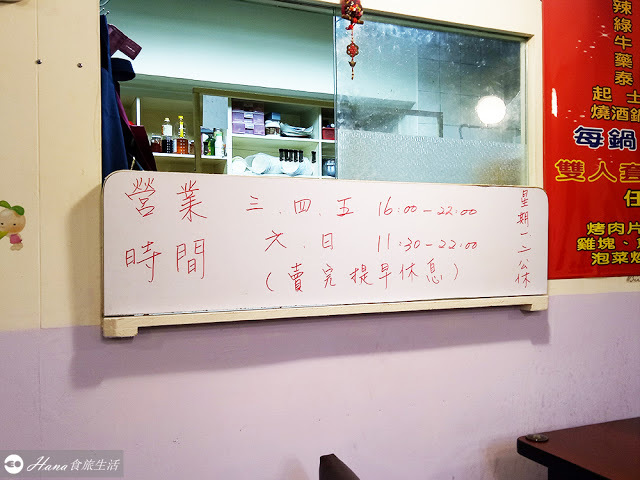 營業時間
三.四.五 16:00-22:00
六.日 11:30-22:00
(賣完提早休息)
星期一二公休
辣
綠
牛
藥
泰
起士
燒酒鍋
每鍋
雙人套
任
烤肉片
雞塊、
泡菜燒
Hana食旅生活